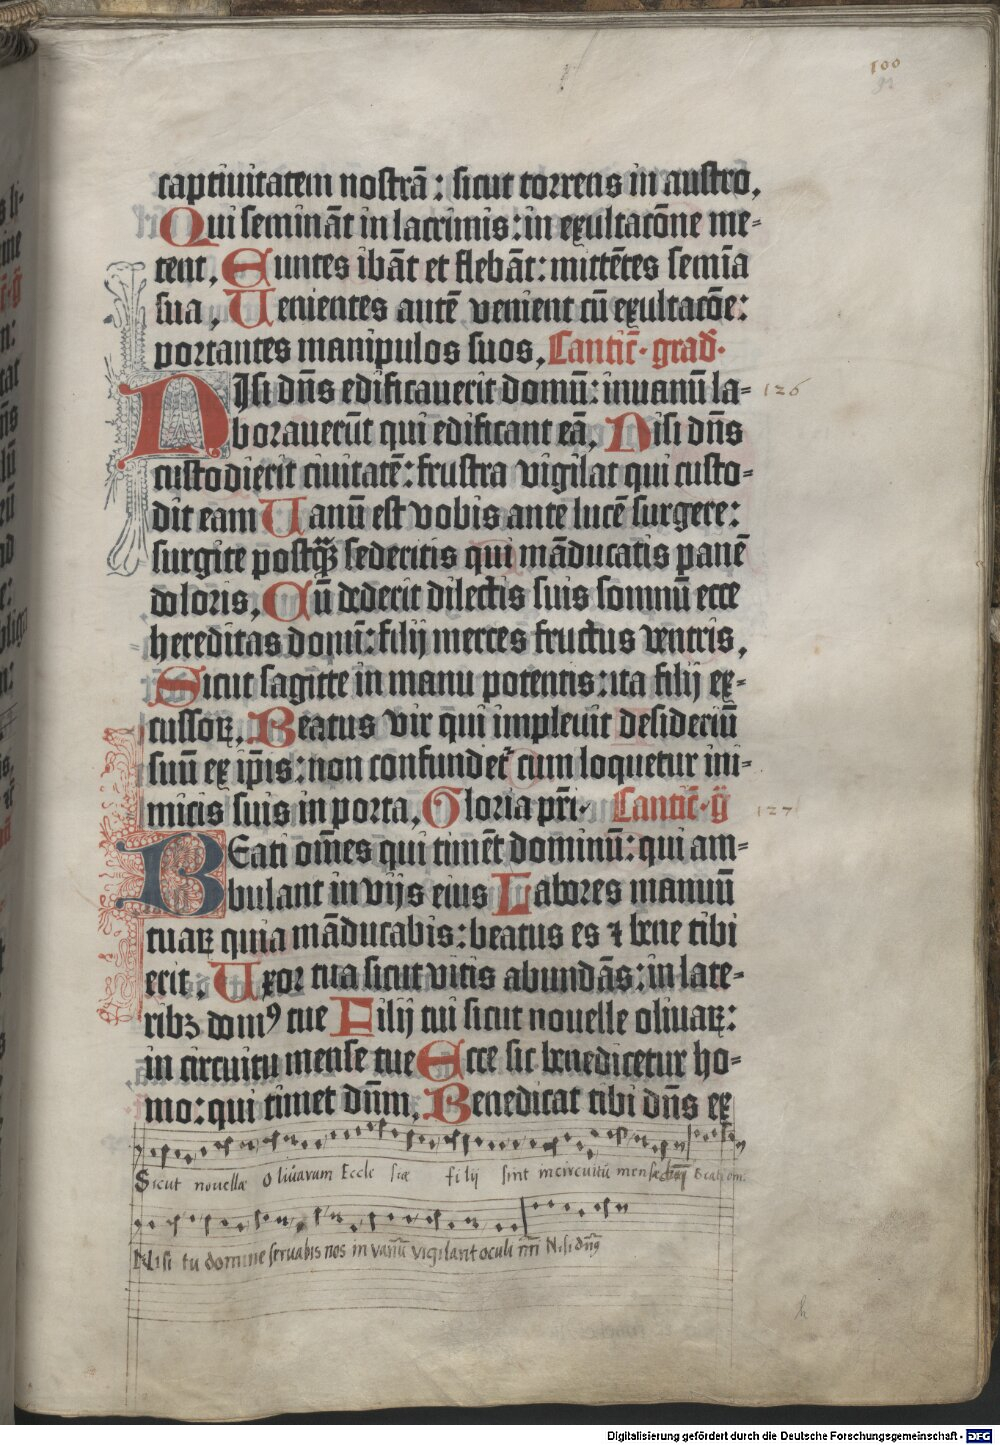 100
captiuitatem nostrā: sicut torrens in austro.
Qui semināt in lacrimis: in exultatōne me-
tent. Euntes ibāt et flebāt: mittētes semīa
sua. Uenientes autē venient cū exultatōe:
portantes manipulos suos. Cantic̄. grad̄.
NIsi dn̄s edificauerit domū: inuanū la-
126
borauerūt qui edificant eā. Nisi dn̄s
custodierit ciuitatē: frustra vigilat qui custo-
dit eam Uanū est vobis ante lucē surgere:
surgite postq̄ꝫ sederitis qui māducatis panē
doloris. Cū dederit dilectis suis somnū ecce
hereditas domī: filij merces fructus ventris.
Sicut sagitte in manu potentis: ita filij ex-
cussoꝝ. Beatus vir qui impleuit desideriū
suū ex ip̄is: non confundet᷑ cum loquetur ini-
micis suis in porta. Gloria pr̄i. Cantic̄. ḡ
127
BEati om̄es qui timēt dominū: qui am-
bulant in vijs eius Labores manuū
tuaꝝ quia māducabis: beatus es ⁊ bene tibi
erit. Uxor tua sicut vitis abundās: in late-
ribꝫ domꝰ tue Filij tui sicut nouelle oliuaꝝ:
in circuitu mense tue Ecce sic benedicetur ho-
mo: qui timet dn̄m. Benedicat tibi dn̄s ex
Sicut novellæ olivarum Eccle siæ filij sint in circuitū mensæ Beati om.
Nisi tu domine servabis nos in vanū vigilant oculi nr̄i Nisi dn̄s
h
Digitalisierung gefördert durch die Deutsche Forschungsgemeinschaft - DFG